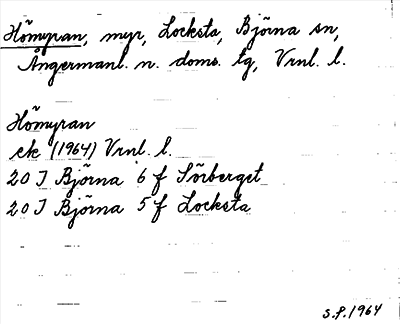 Hömyran, myr, Locksta, Björna sn,
Ångermanl. n. doms. tg, Vrnl. l.
Hömyran
ek (1964) Vrnl. l.
20 I Björna 6 f Sörberget
20 I Björna 5 f Locksta
S.P. 1964